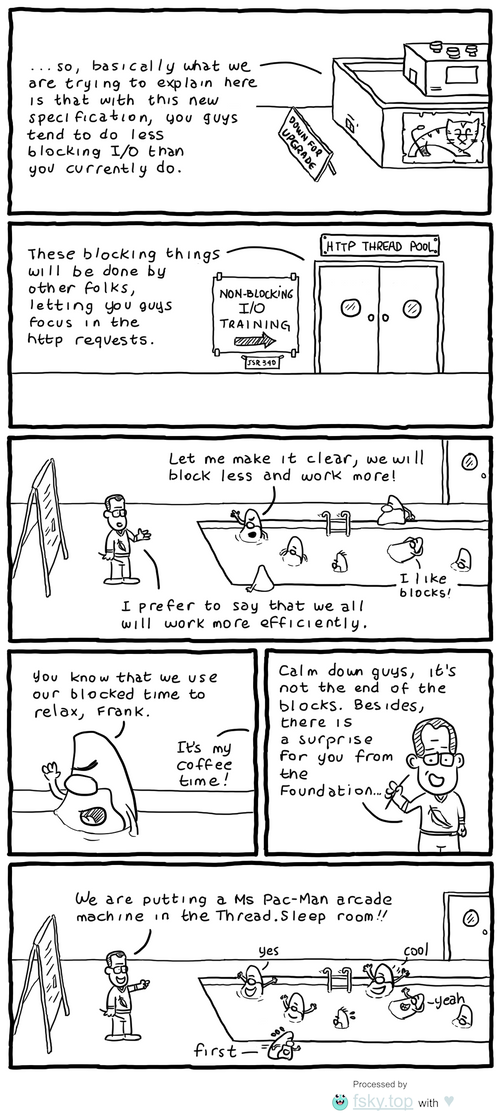 ...so, basically what we
are trying to explain here
is that with this new
specification, you guys
tend to do less
blocking I/O than
you currently do.
DOWN FOR
UPGRADE
These blocking things
will be done by
other folks,
letting you guys
focus in the
http requests.
HTTP THREAD POOL
NON-BLOCKING
I/O
TRAINING
JSR 340
Let me make it clear, we will
block less and work more!
I like
blocks!
I prefer to say that we all
will work more efficiently.
You know that we use
our blocked time to
relax, Frank.
It's my
coffee
time!
Calm down guys, it's
not the end of the
blocks. Besides,
there is
a surprise
for you from
the
Foundation...
We are putting a Ms Pac-Man arcade
machine in the Thread.Sleep room!!
yes
cool
yeah
first
Processed by
fsky.top with